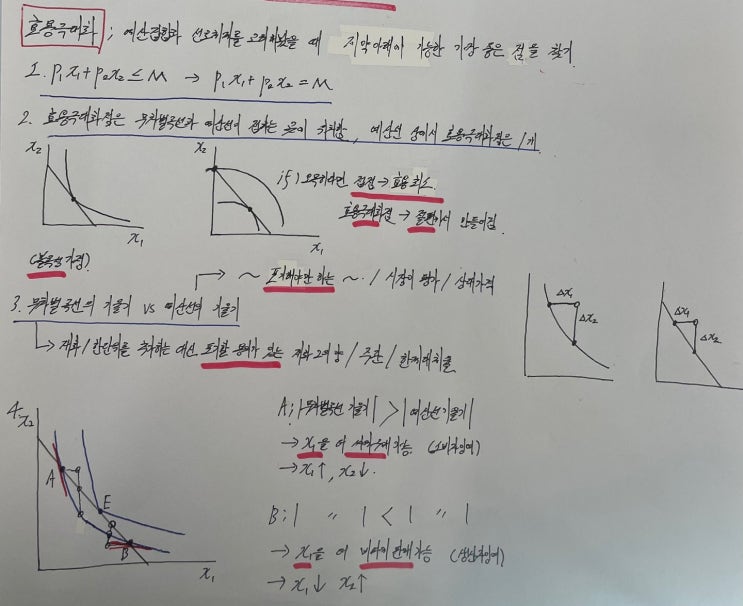 효용극대화 ; 예산집합과 선호체계를 고려했을 때 제약아래에 가능한 가장 좋은 점을 찾기.
1. P₁x₁+P₂x₂≤M → P₁x₁+P₂x₂=M
2. 효용극대화점은 무차별곡선과 예산선이 접하는 곳에 위치함, 예산선 상에서 효용극대화점은 1개.
x₂
x₁
(볼록성 가정)
x₂
x₁
if) 오목하다면 접점 → 효용최소.
효용극대화점 → 끝편에서 만들어짐.
→ ~ 포기해야만 하는 ~ / 시장의 평가 / 상대가격
3. 무차별곡선의 기울기 vs 예산선의 기울기
→ 재화 1 한단위를 추가하는 대신 포기할 용의가 있는 재화 2의 양 / 주관 / 한계대체율
Δx₁
Δx₂
Δx₁
Δx₂
4.
x₂
A
E
B
x₁
A ; |무차별곡선 기울기| > |예산선 기울기|
→ x₁을 더 싸게 구매 가능. (소비자잉여)
→ x₁↑, x₂↓.
B ; | 〃 | < | 〃 |
→ x₁을 더 비싸게 판매 가능 (생산자잉여)
→ x₁↓ x₂↑